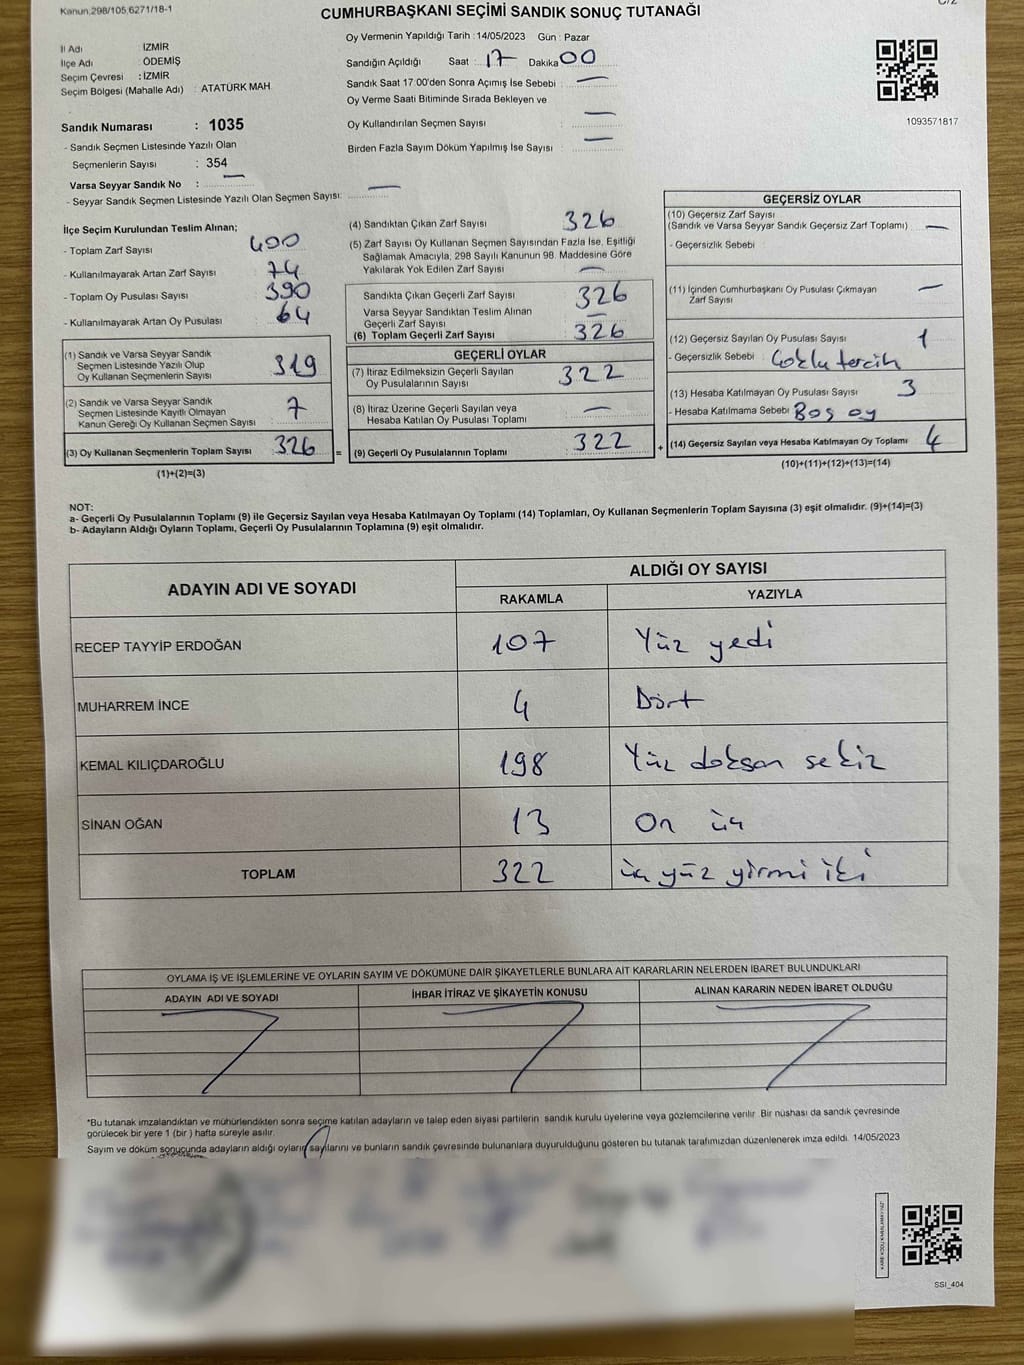 Kanun:298/105,6271/18-1
CUMHURBAŞKANI SEÇİMİ SANDIK SONUÇ TUTANAĞI
İl Adı İZMİR
İlçe Adı ÖDEMİŞ
Seçim Çevresi : İZMİR
Seçim Bölgesi (Mahalle Adı) : ATATÜRK MAH.
Oy Vermenin Yapıldığı Tarih : 14/05/2023 Gün : Pazar
Sandığın Açıldığı Saat : 17 Dakika 00
Sandık Saat 17:00'den Sonra Açımış İse Sebebi : —
Oy Verme Saati Bitiminde Sırada Bekleyen ve
Oy Kullandırılan Seçmen Sayısı : —
Birden Fazla Sayım Döküm Yapılmış İse Sayısı : —
1093571817
Sandık Numarası : 1035
- Sandık Seçmen Listesinde Yazılı Olan
Seçmenlerin Sayısı : 354
Varsa Seyyar Sandık No : —
- Seyyar Sandık Seçmen Listesinde Yazılı Olan Seçmen Sayısı: —
İlçe Seçim Kurulundan Teslim Alınan;
- Toplam Zarf Sayısı 400
- Kullanılmayarak Artan Zarf Sayısı : 74
- Toplam Oy Pusulası Sayısı 390
- Kullanılmayarak Artan Oy Pusulası : 64
(1) Sandık ve Varsa Seyyar Sandık
Seçmen Listesinde Yazılı Olup
Oy Kullanan Seçmenlerin Sayısı 319
(2) Sandık ve Varsa Seyyar Sandık
Seçmen Listesinde Kayıtlı Olmayan
Kanun Gereği Oy Kullanan Seçmen Sayısı 7
(3) Oy Kullanan Seçmenlerin Toplam Sayısı 326
(1)+(2)=(3)
(4) Sandıktan Çıkan Zarf Sayısı 326
(5) Zarf Sayısı Oy Kullanan Seçmen Sayısından Fazla İse, Eşitliği
Sağlamak Amacıyla, 298 Sayılı Kanunun 98. Maddesine Göre
Yakılarak Yok Edilen Zarf Sayısı —
Sandıkta Çıkan Geçerli Zarf Sayısı 326
Varsa Seyyar Sandıktan Teslim Alınan
Geçerli Zarf Sayısı —
(6) Toplam Geçerli Zarf Sayısı 326
GEÇERLİ OYLAR
(7) İtiraz Edilmeksizin Geçerli Sayılan
Oy Pusulalarının Sayısı 322
(8) İtiraz Üzerine Geçerli Sayılan veya
Hesaba Katılan Oy Pusulası Toplamı —
= (9) Geçerli Oy Pusulalarının Toplamı 322
GEÇERSİZ OYLAR
(10) Geçersiz Zarf Sayısı
(Sandık ve Varsa Seyyar Sandık Geçersiz Zarf Toplamı) —
- Geçersizlik Sebebi :
(11) İçinden Cumhurbaşkanı Oy Pusulası Çıkmayan
Zarf Sayısı —
(12) Geçersiz Sayılan Oy Pusulası Sayısı 1
- Geçersizlik Sebebi : Çoklu tercih
(13) Hesaba Katılmayan Oy Pusulası Sayısı 3
- Hesaba Katılmama Sebebi : Boş oy
+ (14) Geçersiz Sayılan veya Hesaba Katılmayan Oy Toplamı 4
(10)+(11)+(12)+(13)=(14)
NOT:
a- Geçerli Oy Pusulalarının Toplamı (9) ile Geçersiz Sayılan veya Hesaba Katılmayan Oy Toplamı (14) Toplamları, Oy Kullanan Seçmenlerin Toplam Sayısına (3) eşit olmalıdır. (9)+(14)=(3)
b- Adayların Aldığı Oyların Toplamı, Geçerli Oy Pusulalarının Toplamına (9) eşit olmalıdır.
ADAYIN ADI VE SOYADI ALDIĞI OY SAYISI
RAKAMLA YAZIYLA
RECEP TAYYİP ERDOĞAN 107 Yüz yedi
MUHARREM İNCE 4 Dört
KEMAL KILIÇDAROĞLU 198 Yüz doksan sekiz
SİNAN OĞAN 13 On üç
TOPLAM 322 üç yüz yirmi iki
OYLAMA İŞ VE İŞLEMLERİNE VE OYLARIN SAYIM VE DÖKÜMÜNE DAİR ŞİKAYETLERLE BUNLARA AİT KARARLARIN NELERDEN İBARET BULUNDUKLARI
ADAYIN ADI VE SOYADI İHBAR İTİRAZ VE ŞİKAYETİN KONUSU ALINAN KARARIN NEDEN İBARET OLDUĞU
*Bu tutanak imzalandıktan ve mühürlendikten sonra seçime katılan adayların ve talep eden siyasi partilerin sandık kurulu üyelerine veya gözlemcilerine verilir. Bir nüshası da sandık çevresinde
görülecek bir yere 1 (bir ) hafta süreyle asılır.
Sayım ve döküm sonucunda adayların aldığı oyların sayılarını ve bunların sandık çevresinde bulunanlara duyurulduğunu gösteren bu tutanak tarafımızdan düzenlenerek imza edildi. 14/05/2023
SSI_404